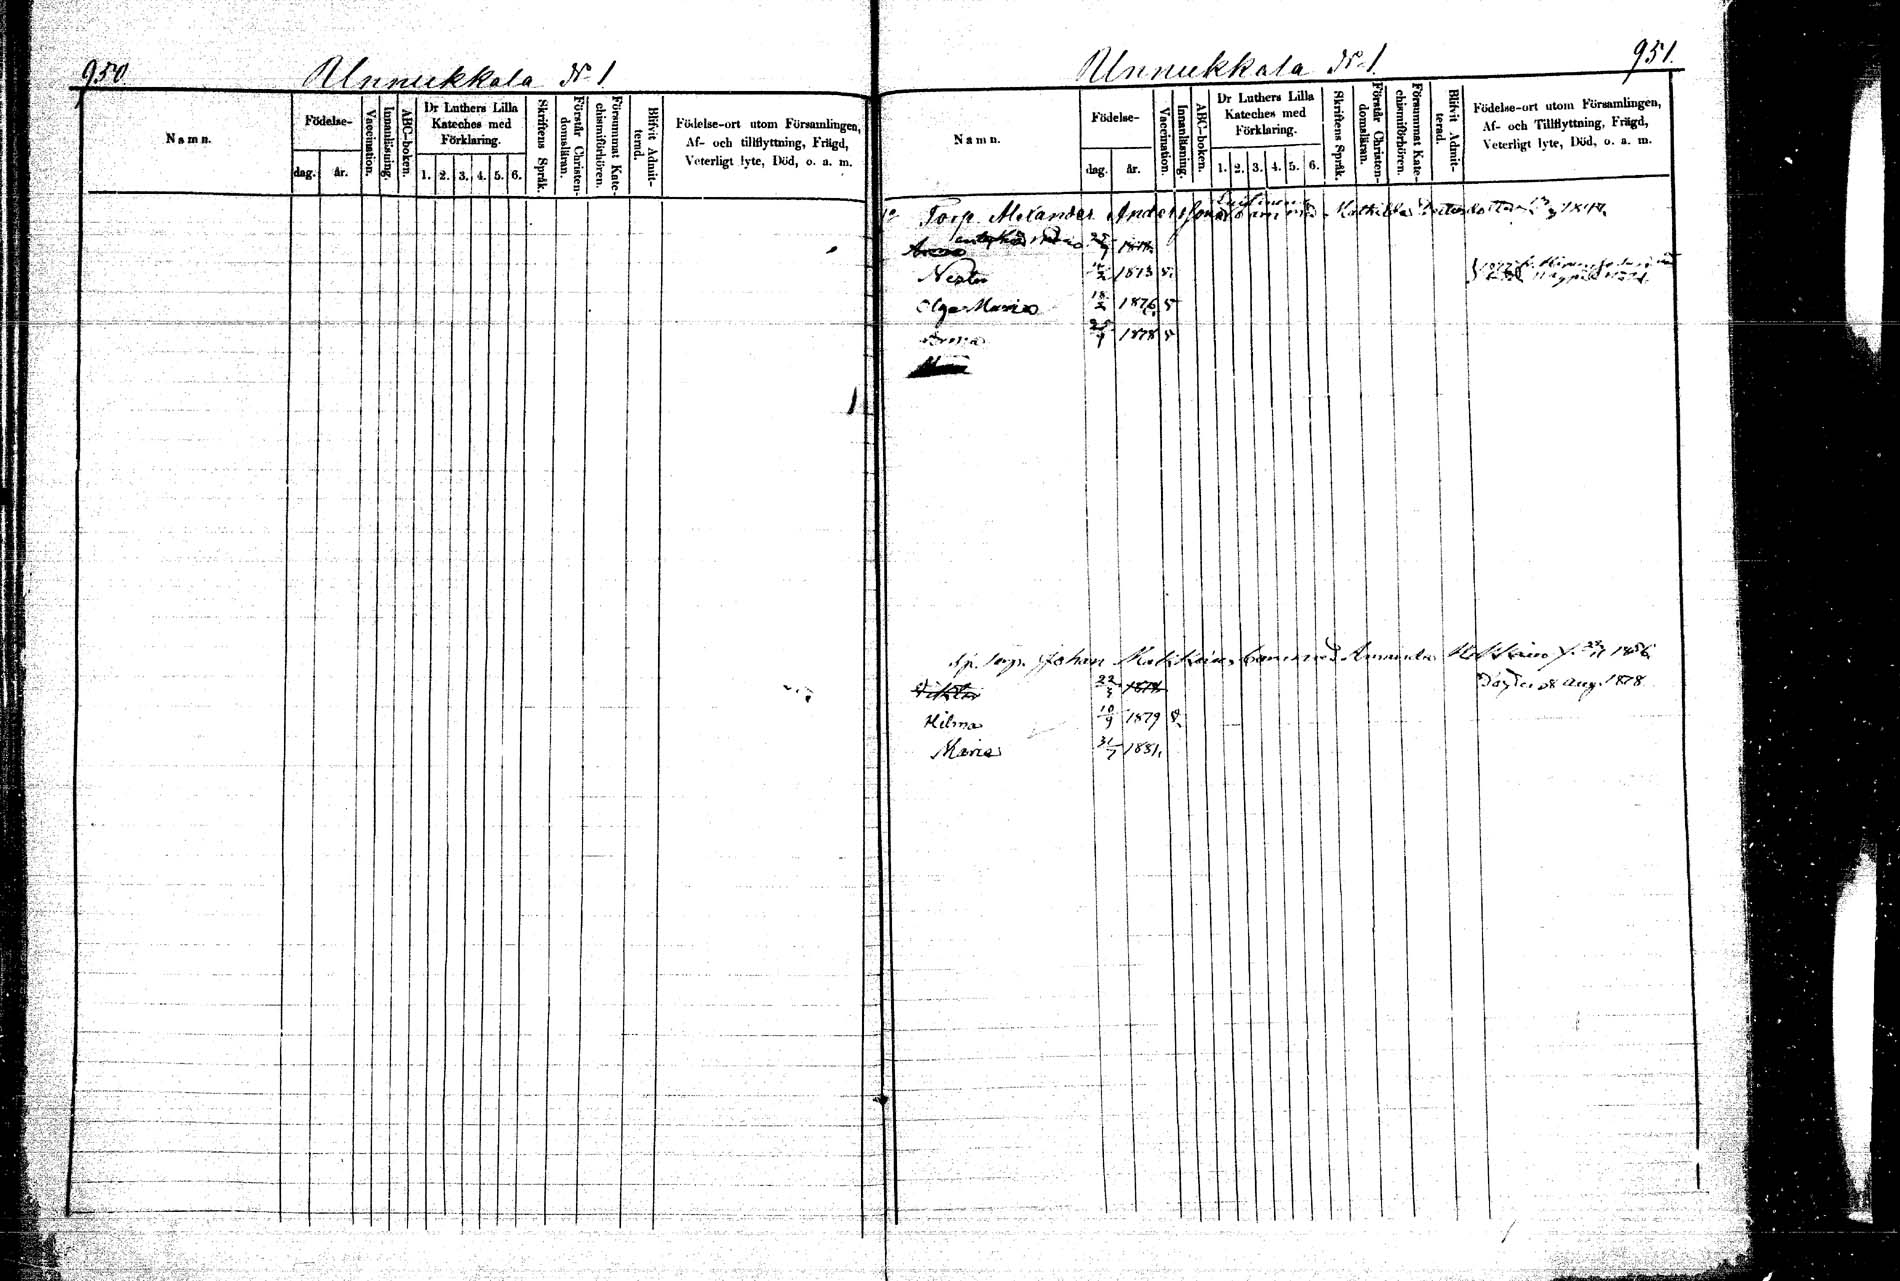 950.
Unnukkala No 1.
Namn.
Födelse-
dag.
år.
Vaccination.
Innanläsning.
ABC-boken.
Dr Luthers Lilla
Kateches med
Förklaring.
1. 2. 3. 4. 5. 6.
Skriftens Språk.
Förstår Christen-
domsläran.
Försummat Kate-
chismiförhören.
Blifvit Admit-
terad.
Födelse-ort utom Församlingen,
Af- och tillflyttning, Frägd,
Veterligt lyte, Död, o. a. m.
951.
Unnukkala No 1.
Namn.
Födelse-
dag.
år.
Vaccination.
Innanläsning.
ABC-boken.
Dr Luthers Lilla
Kateches med
Förklaring.
1. 2. 3. 4. 5. 6.
Skriftens Språk.
Förstår Christen-
domsläran.
Försummat Kate-
chismiförhören.
Blifvit Admit-
terad.
Födelse-ort utom Församlingen,
Af- och Tillflyttning, Frägd,
Veterligt lyte, Död, o. a. m.
Torp. Alexander Andersson barn med Mathilda
Nestor 1873 v.
Olga Maria 18/2 1876 v
25/9 1878 v
Torp. Johan barn med Amanda 1856
22/3 1878 Död den 28 Aug. 1878
Hilma 10/9 1879 v.
Maria 31/7 1881.